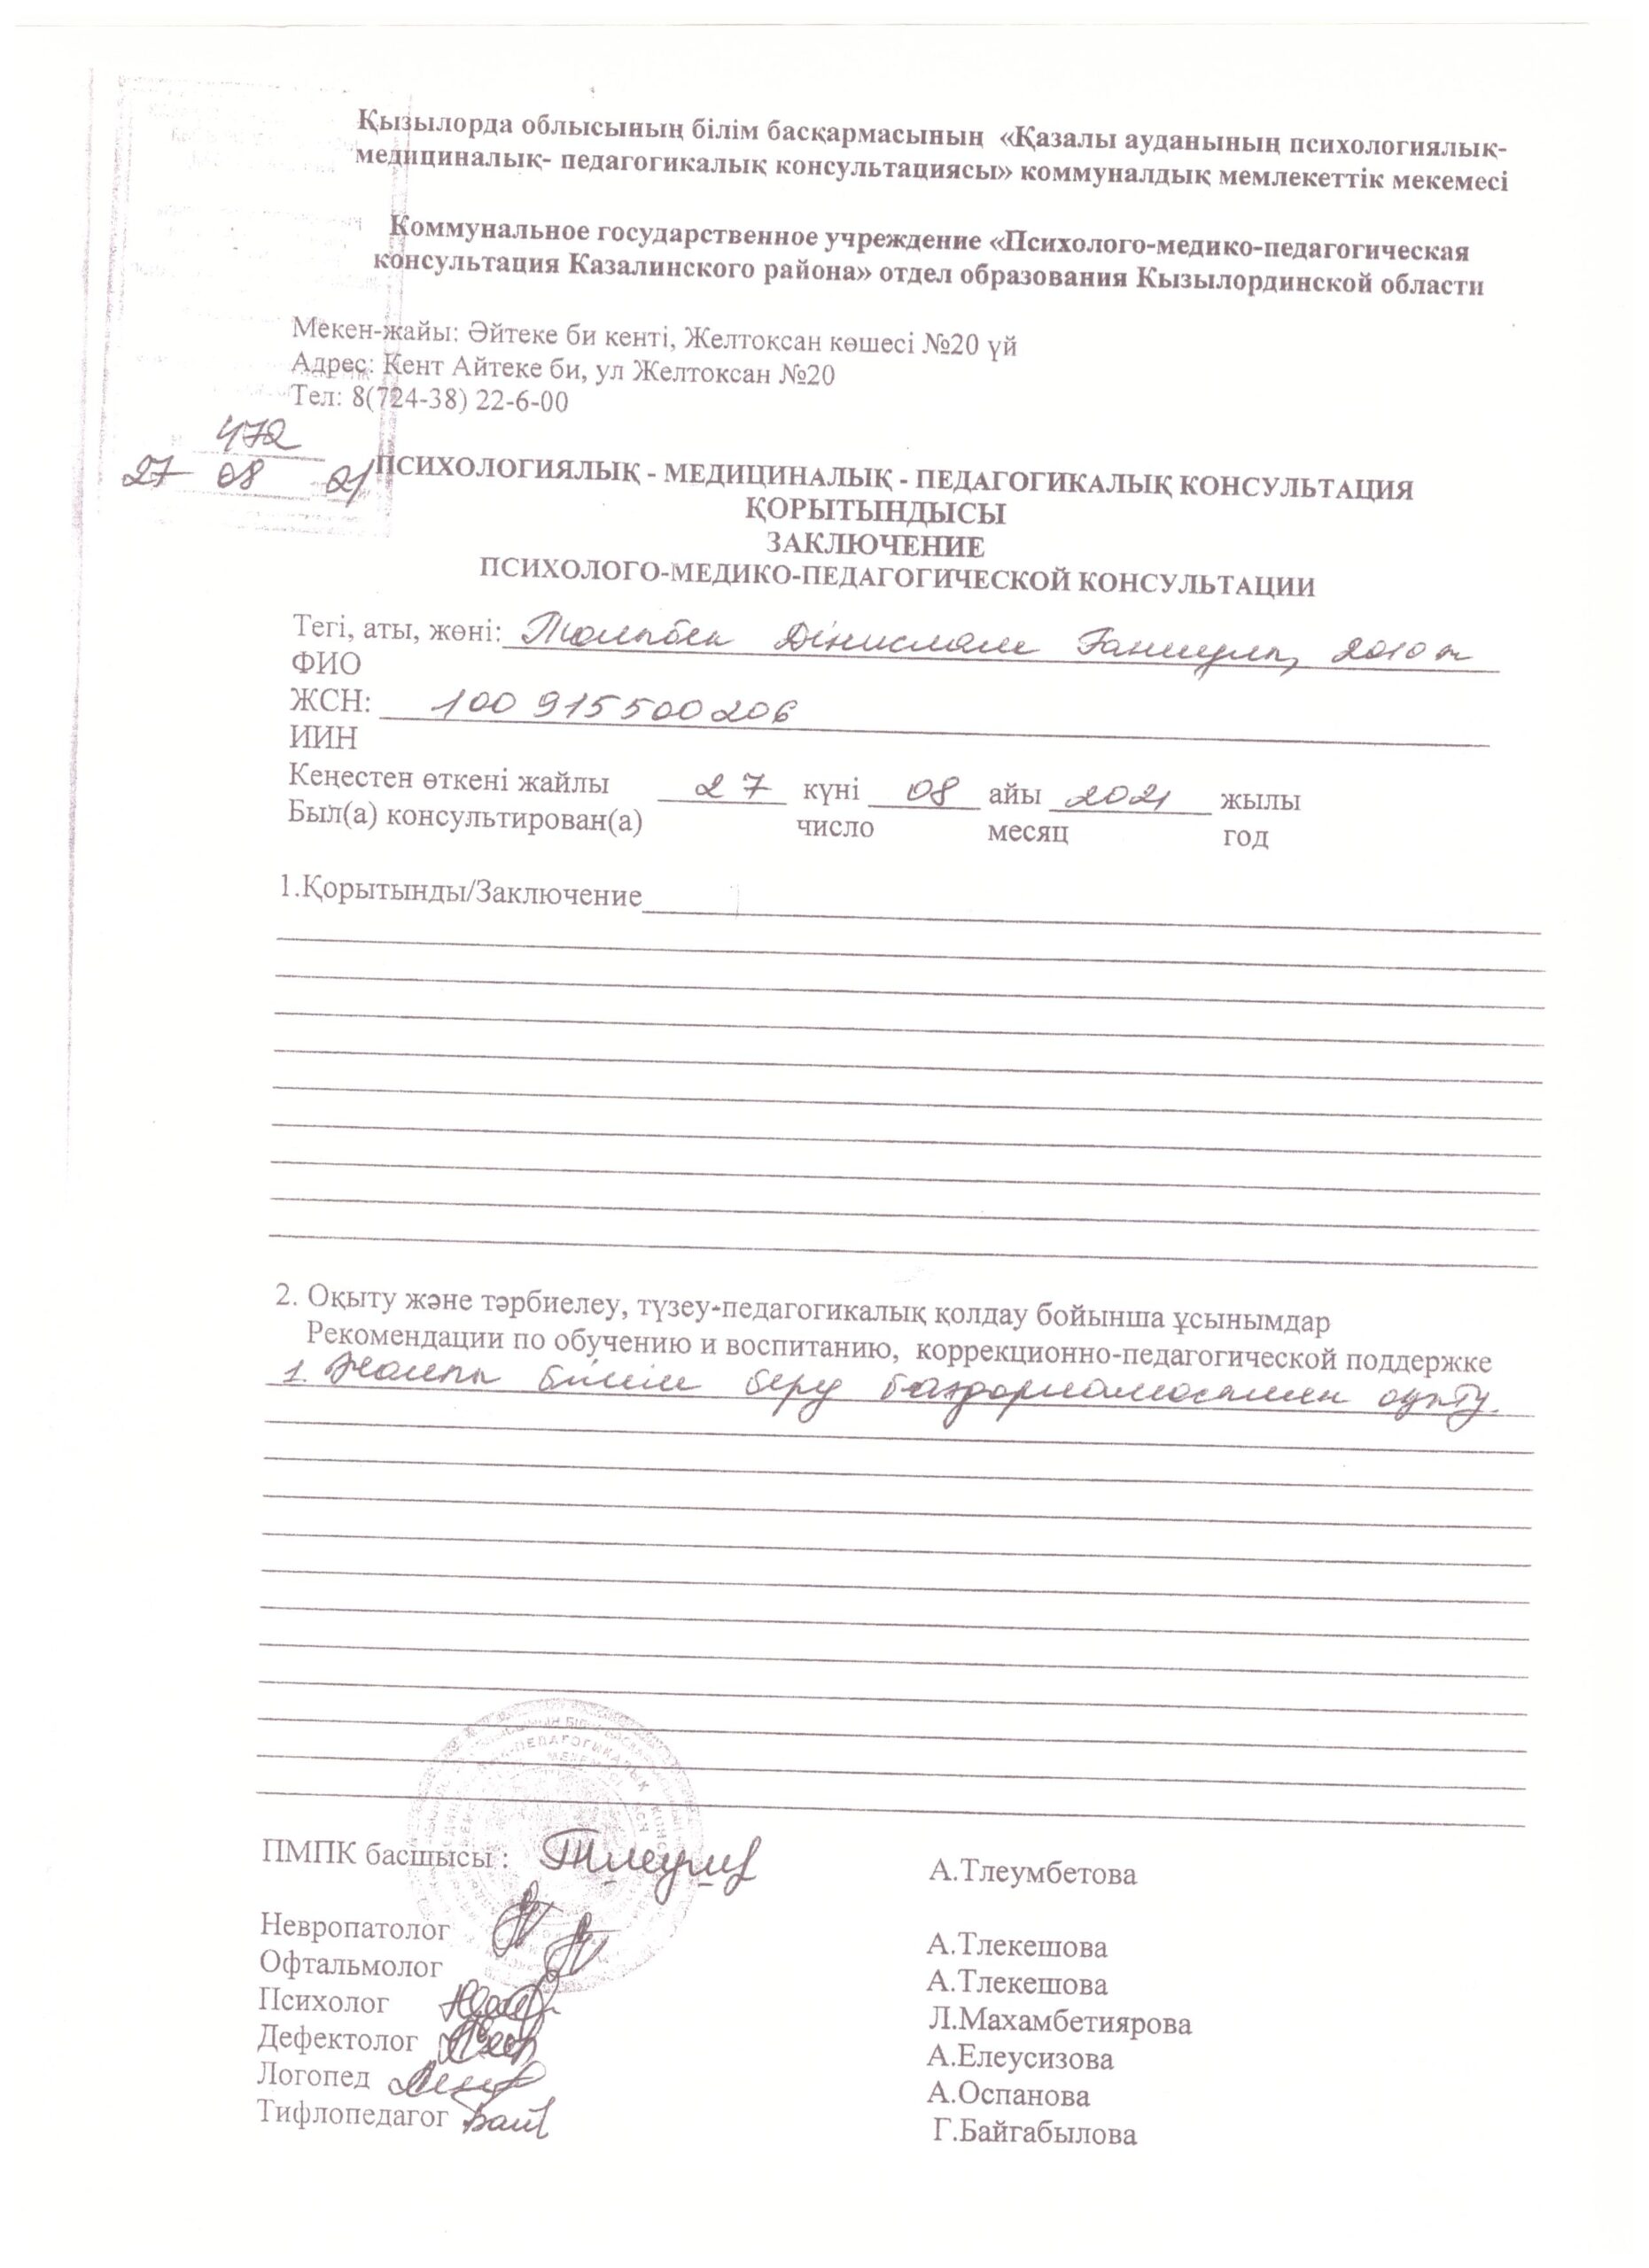 Қызылорда облысының білім басқармасының «Қазалы ауданының психологиялық-
медициналық- педагогикалық консультациясы» коммуналдық мемлекеттік мекемесі
Коммунальное государственное учреждение «Психолого-медико-педагогическая
консультация Казалинского района» отдел образования Кызылординской области
Мекен-жайы: Әйтеке би кенті, Желтоксан көшесі №20 үй
Адрес: Кент Айтеке би, ул Желтоксан №20
Тел: 8(724-38) 22-6-00
472
27 08 21
ПСИХОЛОГИЯЛЫҚ - МЕДИЦИНАЛЫҚ - ПЕДАГОГИКАЛЫҚ КОНСУЛЬТАЦИЯ
ҚОРЫТЫНДЫСЫ
ЗАКЛЮЧЕНИЕ
ПСИХОЛОГО-МЕДИКО-ПЕДАГОГИЧЕСКОЙ КОНСУЛЬТАЦИИ
Тегі, аты, жөні: Дінислам 2010 ж
ФИО
ЖСН: 100 915 500 206
ИИН
Кеңестен өткені жайлы 27 күні 08 айы 2021 жылы
Был(а) консультирован(а) число месяц год
1.Қорытынды/Заключение
2. Оқыту және тәрбиелеу, түзеу-педагогикалық қолдау бойынша ұсынымдар
Рекомендации по обучению и воспитанию, коррекционно-педагогической поддержке
1. Жалпы білім беру бағдарламасымен оқыту.
ПМПК басшысы : А.Тлеумбетова
Невропатолог А.Тлекешова
Офтальмолог А.Тлекешова
Психолог Л.Махамбетиярова
Дефектолог А.Елеусизова
Логопед А.Оспанова
Тифлопедагог Г.Байгабылова